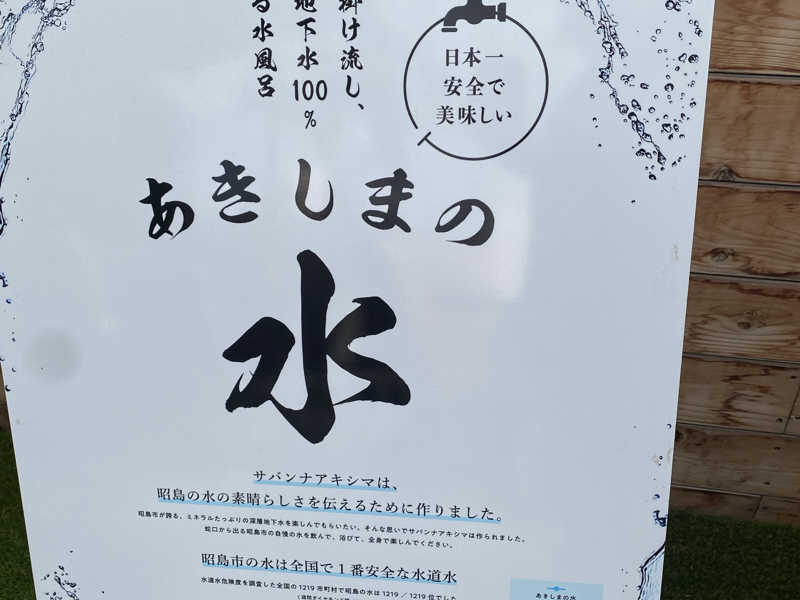 掛け流し、
地下水100%
る水風呂
日本一
安全で
美味しい
あきしまの
水
サバンナアキシマは、
昭島の水の素晴らしさを伝えるために作りました。
昭島市が誇る、ミネラルたっぷりの深層地下水を楽しんでもらいたい。そんな思いでサバンナアキシマは作られました。
蛇口から出る昭島市の自慢の水を飲んで、浴びて、全身で楽しんでください。
昭島市の水は全国で1番安全な水道水
水道水危険度を調査した全国の1219市町村で昭島の水は1219/1219位でした
あきしまの水